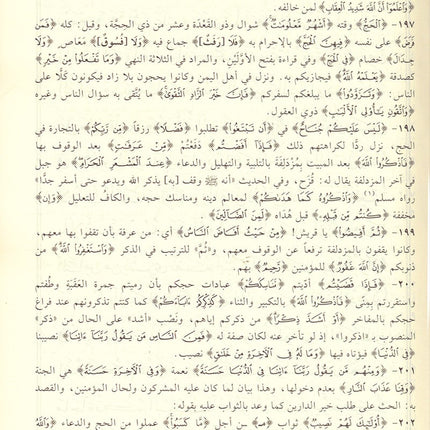 ﴿وَٱعْلَمُوٓا۟ أَنَّ ٱللَّهَ شَدِيدُ ٱلْعِقَابِ﴾ لمن خالفه.
١٩٧- ﴿ٱلْحَجُّ﴾ وقته ﴿أَشْهُرٌ مَّعْلُومَـٰتٌ﴾ شوال وذو القَعْدة وعشر من ذي الحِجَّة، وقيل: كله ﴿فَمَن
فَرَضَ﴾ على نفسه ﴿فِيهِنَّ ٱلْحَجَّ﴾ بالإحرام به ﴿فَلَا رَفَثَ﴾ جماع فيه ﴿وَلَا فُسُوقَ﴾ معاص ﴿وَلَا
جِدَالَ﴾ خصام ﴿فِى ٱلْحَجِّ﴾ وفي قراءة بفتح الأوَّلَيْن، والمراد في الثلاثة النهي ﴿وَمَا تَفْعَلُوا۟ مِنْ خَيْرٍ﴾
كصدقة ﴿يَعْلَمْهُ ٱللَّهُ﴾ فيجازيكم به. ونزل في أهل اليمن وكانوا يحجون بلا زاد فيكونون كَلًّا على
الناس: ﴿وَتَزَوَّدُوا۟﴾ ما يبلغكم لسفركم ﴿فَإِنَّ خَيْرَ ٱلزَّادِ ٱلتَّقْوَىٰ﴾ ما يُتَّقى به سؤال الناس وغيره
﴿وَٱتَّقُونِ يَـٰٓأُو۟لِى ٱلْأَلْبَـٰبِ﴾ ذوي العقول.
١٩٨- ﴿لَيْسَ عَلَيْكُمْ جُنَاحٌ﴾ في ﴿أَن تَبْتَغُوا۟﴾ تطلبوا ﴿فَضْلًا﴾ رزقاً ﴿مِّن رَّبِّكُمْ﴾ بالتجارة في
الحج، نزل ردًّا لكراهتهم ذلك ﴿فَإِذَآ أَفَضْتُم﴾ دفعتُم ﴿مِّنْ عَرَفَـٰتٍ﴾ بعد الوقوف بها
﴿فَٱذْكُرُوا۟ ٱللَّهَ﴾ بعد المبيت بمُزدَلِفة بالتلبية والتهليل والدعاء ﴿عِندَ ٱلْمَشْعَرِ ٱلْحَرَامِ﴾ هو جبل
في آخر المزدلفة يقال له: قُزَح، وفي الحديث «أنه ﷺ وقف [به] يذكر الله ويدعو حتى أسفر جدًّا»
رواه مسلم(١) ﴿وَٱذْكُرُوهُ كَمَا هَدَىٰكُمْ﴾ لمعالم دينه ومناسك حجه، والكاف للتعليل ﴿وَإِن﴾
مخففة ﴿كُنتُم مِّن قَبْلِهِۦ﴾ قبل هُداه ﴿لَمِنَ ٱلضَّآلِّينَ﴾.
١٩٩- ﴿ثُمَّ أَفِيضُوا۟﴾ يا قريش! ﴿مِنْ حَيْثُ أَفَاضَ ٱلنَّاسُ﴾ أي: من عرفة بأن تقفوا بها معهم،
وكانوا يقفون بالمزدلفة ترفعاً عن الوقوف معهم، و«ثُمَّ» للترتيب في الذكر ﴿وَٱسْتَغْفِرُوا۟ ٱللَّهَ﴾ من
ذنوبكم ﴿إِنَّ ٱللَّهَ غَفُورٌ﴾ للمؤمنين ﴿رَّحِيمٌ﴾ بهم.
٢٠٠- ﴿فَإِذَا قَضَيْتُم﴾ أدَّيتم ﴿مَّنَـٰسِكَكُمْ﴾ عبادات حجكم بأن رميتم جمرة العَقَبة وطُفتم
واستقررتم بمِنًى ﴿فَٱذْكُرُوا۟ ٱللَّهَ﴾ بالتكبير والثناء ﴿كَذِكْرِكُمْ ءَابَآءَكُمْ﴾ كما كنتم تذكرونهم عند فراغ
حجكم بالمفاخر ﴿أَوْ أَشَدَّ ذِكْرًا﴾ من ذكركم إياهم، ونصْب «أشد» على الحال من «ذكر»
المنصوب بـ «اذكروا»، إذ لو تأخر عنه لكان صفة له ﴿فَمِنَ ٱلنَّاسِ مَن يَقُولُ رَبَّنَآ ءَاتِنَا﴾ نصيبنا
﴿فِى ٱلدُّنْيَا﴾ فيؤتاه فيها ﴿وَمَا لَهُۥ فِى ٱلْـَٔاخِرَةِ مِنْ خَلَـٰقٍ﴾ نصيب.
٢٠١- ﴿وَمِنْهُم مَّن يَقُولُ رَبَّنَآ ءَاتِنَا فِى ٱلدُّنْيَا حَسَنَةً﴾ نعمة ﴿وَفِى ٱلْـَٔاخِرَةِ حَسَنَةً﴾ هي الجنة
﴿وَقِنَا عَذَابَ ٱلنَّارِ﴾ بعدم دخولها، وهذا بيان لما كان عليه المشركون ولحال المؤمنين، والقصد
به: الحث على طلب خير الدارين كما وعد بالثواب عليه بقوله:
٢٠٢- ﴿أُو۟لَـٰٓئِكَ لَهُمْ نَصِيبٌ﴾ ثواب ﴿مِّـ﴾ ـن أجل ﴿مَّا كَسَبُوا۟﴾ عملوا من الحج والدعاء ﴿وَٱللَّهُ